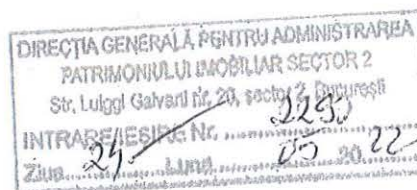 DIRECȚIA GENERALĂ PENTRU ADMINISTRAREA
PATRIMONIULUI IMOBILIAR SECTOR 2
Str. Luigi Galvani nr. 20, sector 2, București
INTRARE/IEȘIRE Nr. 2290
Ziua 24 Luna 05 20 22